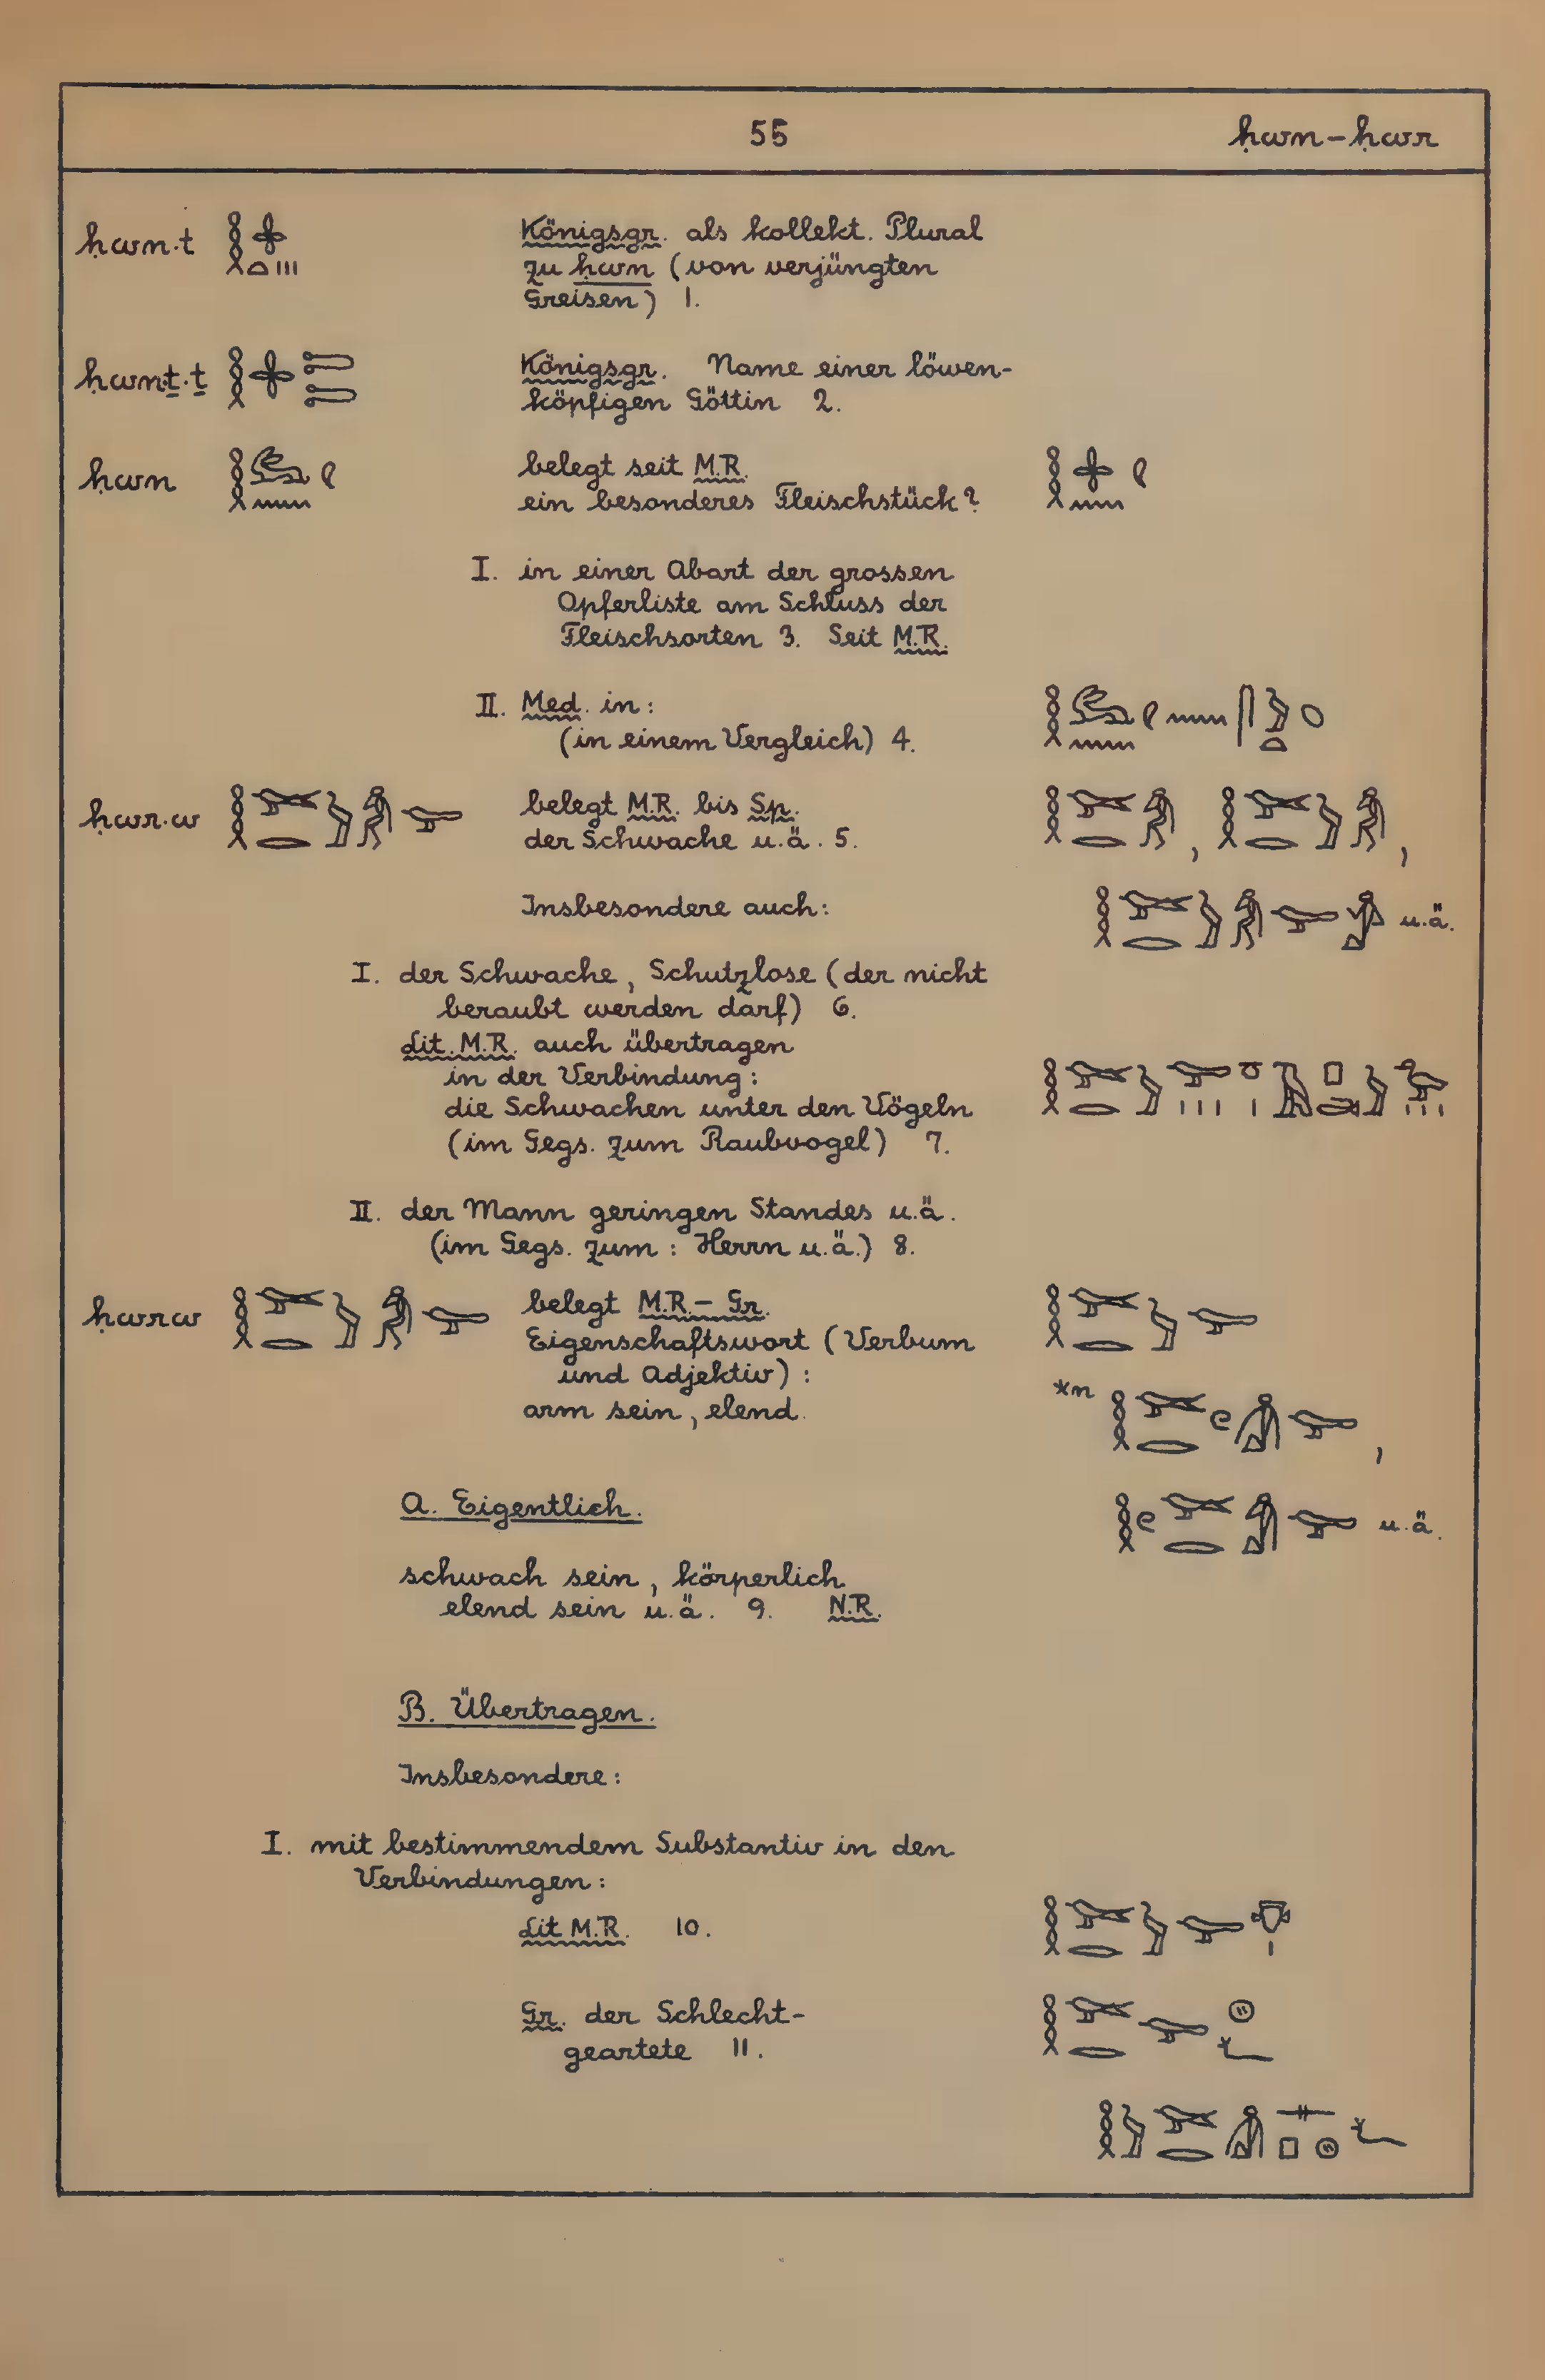 55 ḥwn – ḥwr
ḥwn·t Königsgr. als kollekt. Plural
zu ḥwn (von verjüngten
Greisen) 1.
ḥwnṯ·ṯ Königsgr. Name einer löwen-
köpfigen Göttin 2.
ḥwn belegt seit M.R.
ein besonderes Fleischstück?
I. in einer Abart der grossen
Opferliste am Schluss der
Fleischsorten 3. Seit M.R.
II. Med. in:
(in einem Vergleich) 4.
ḥwr·w belegt M.R. bis Sp.
der Schwache u.ä. 5.
Insbesondere auch: u.ä.
I. der Schwache, Schutzlose (der nicht
beraubt werden darf) 6.
Lit. M.R. auch übertragen
in der Verbindung:
die Schwachen unter den Vögeln
(im Gegs. zum Raubvogel) 7.
II. der Mann geringen Standes u.ä.
(im Gegs. zum: Herrn u.ä.) 8.
ḥwrw belegt M.R. – Gr.
Eigenschaftswort (Verbum
und Adjektiv):
*n
arm sein, elend.
A. Eigentlich.
u.ä.
schwach sein, körperlich
elend sein u.ä. 9. N.R.
B. Übertragen.
Insbesondere:
I. mit bestimmendem Substantiv in den
Verbindungen:
Lit M.R. 10.
Gr. der Schlecht-
geartete 11.